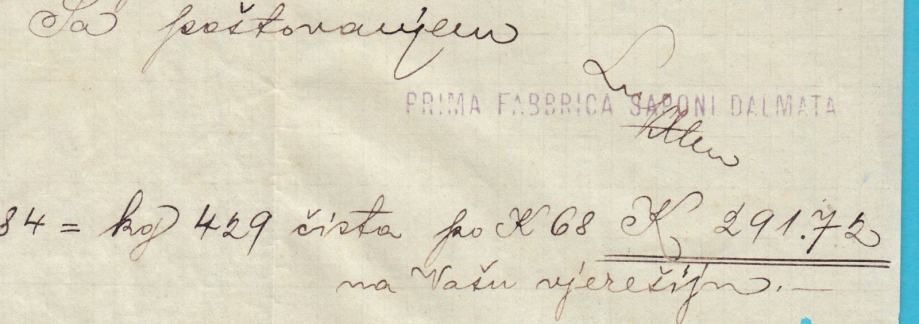 Sa poštovanjem
PRIMA FABBRICA SAPONI DALMATA
84 = kg 429 čista po K 68 K 291.72
na Vašu vjerešiju.—